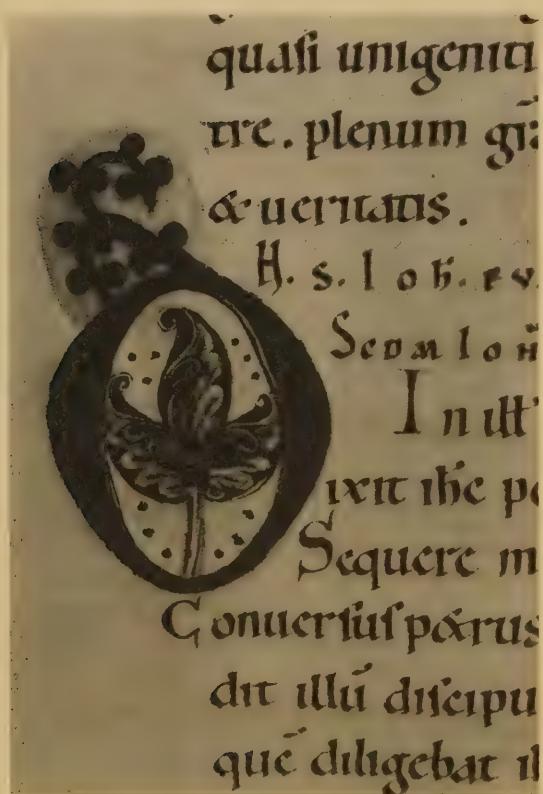 quasi unigeniti
tre. plenum gr̃a
& ueritatis.
H. S. Ioħ. ev
Scdm Ioh̃
In ill'
Dixit ih̅c pe
Sequere m
Conuersus petrus
dit illū discipu
quē diligebat i